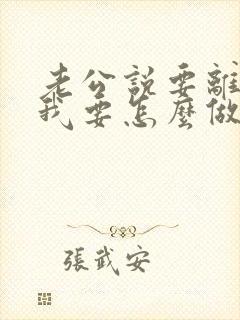 老公說要離
我要怎麼做
張武安